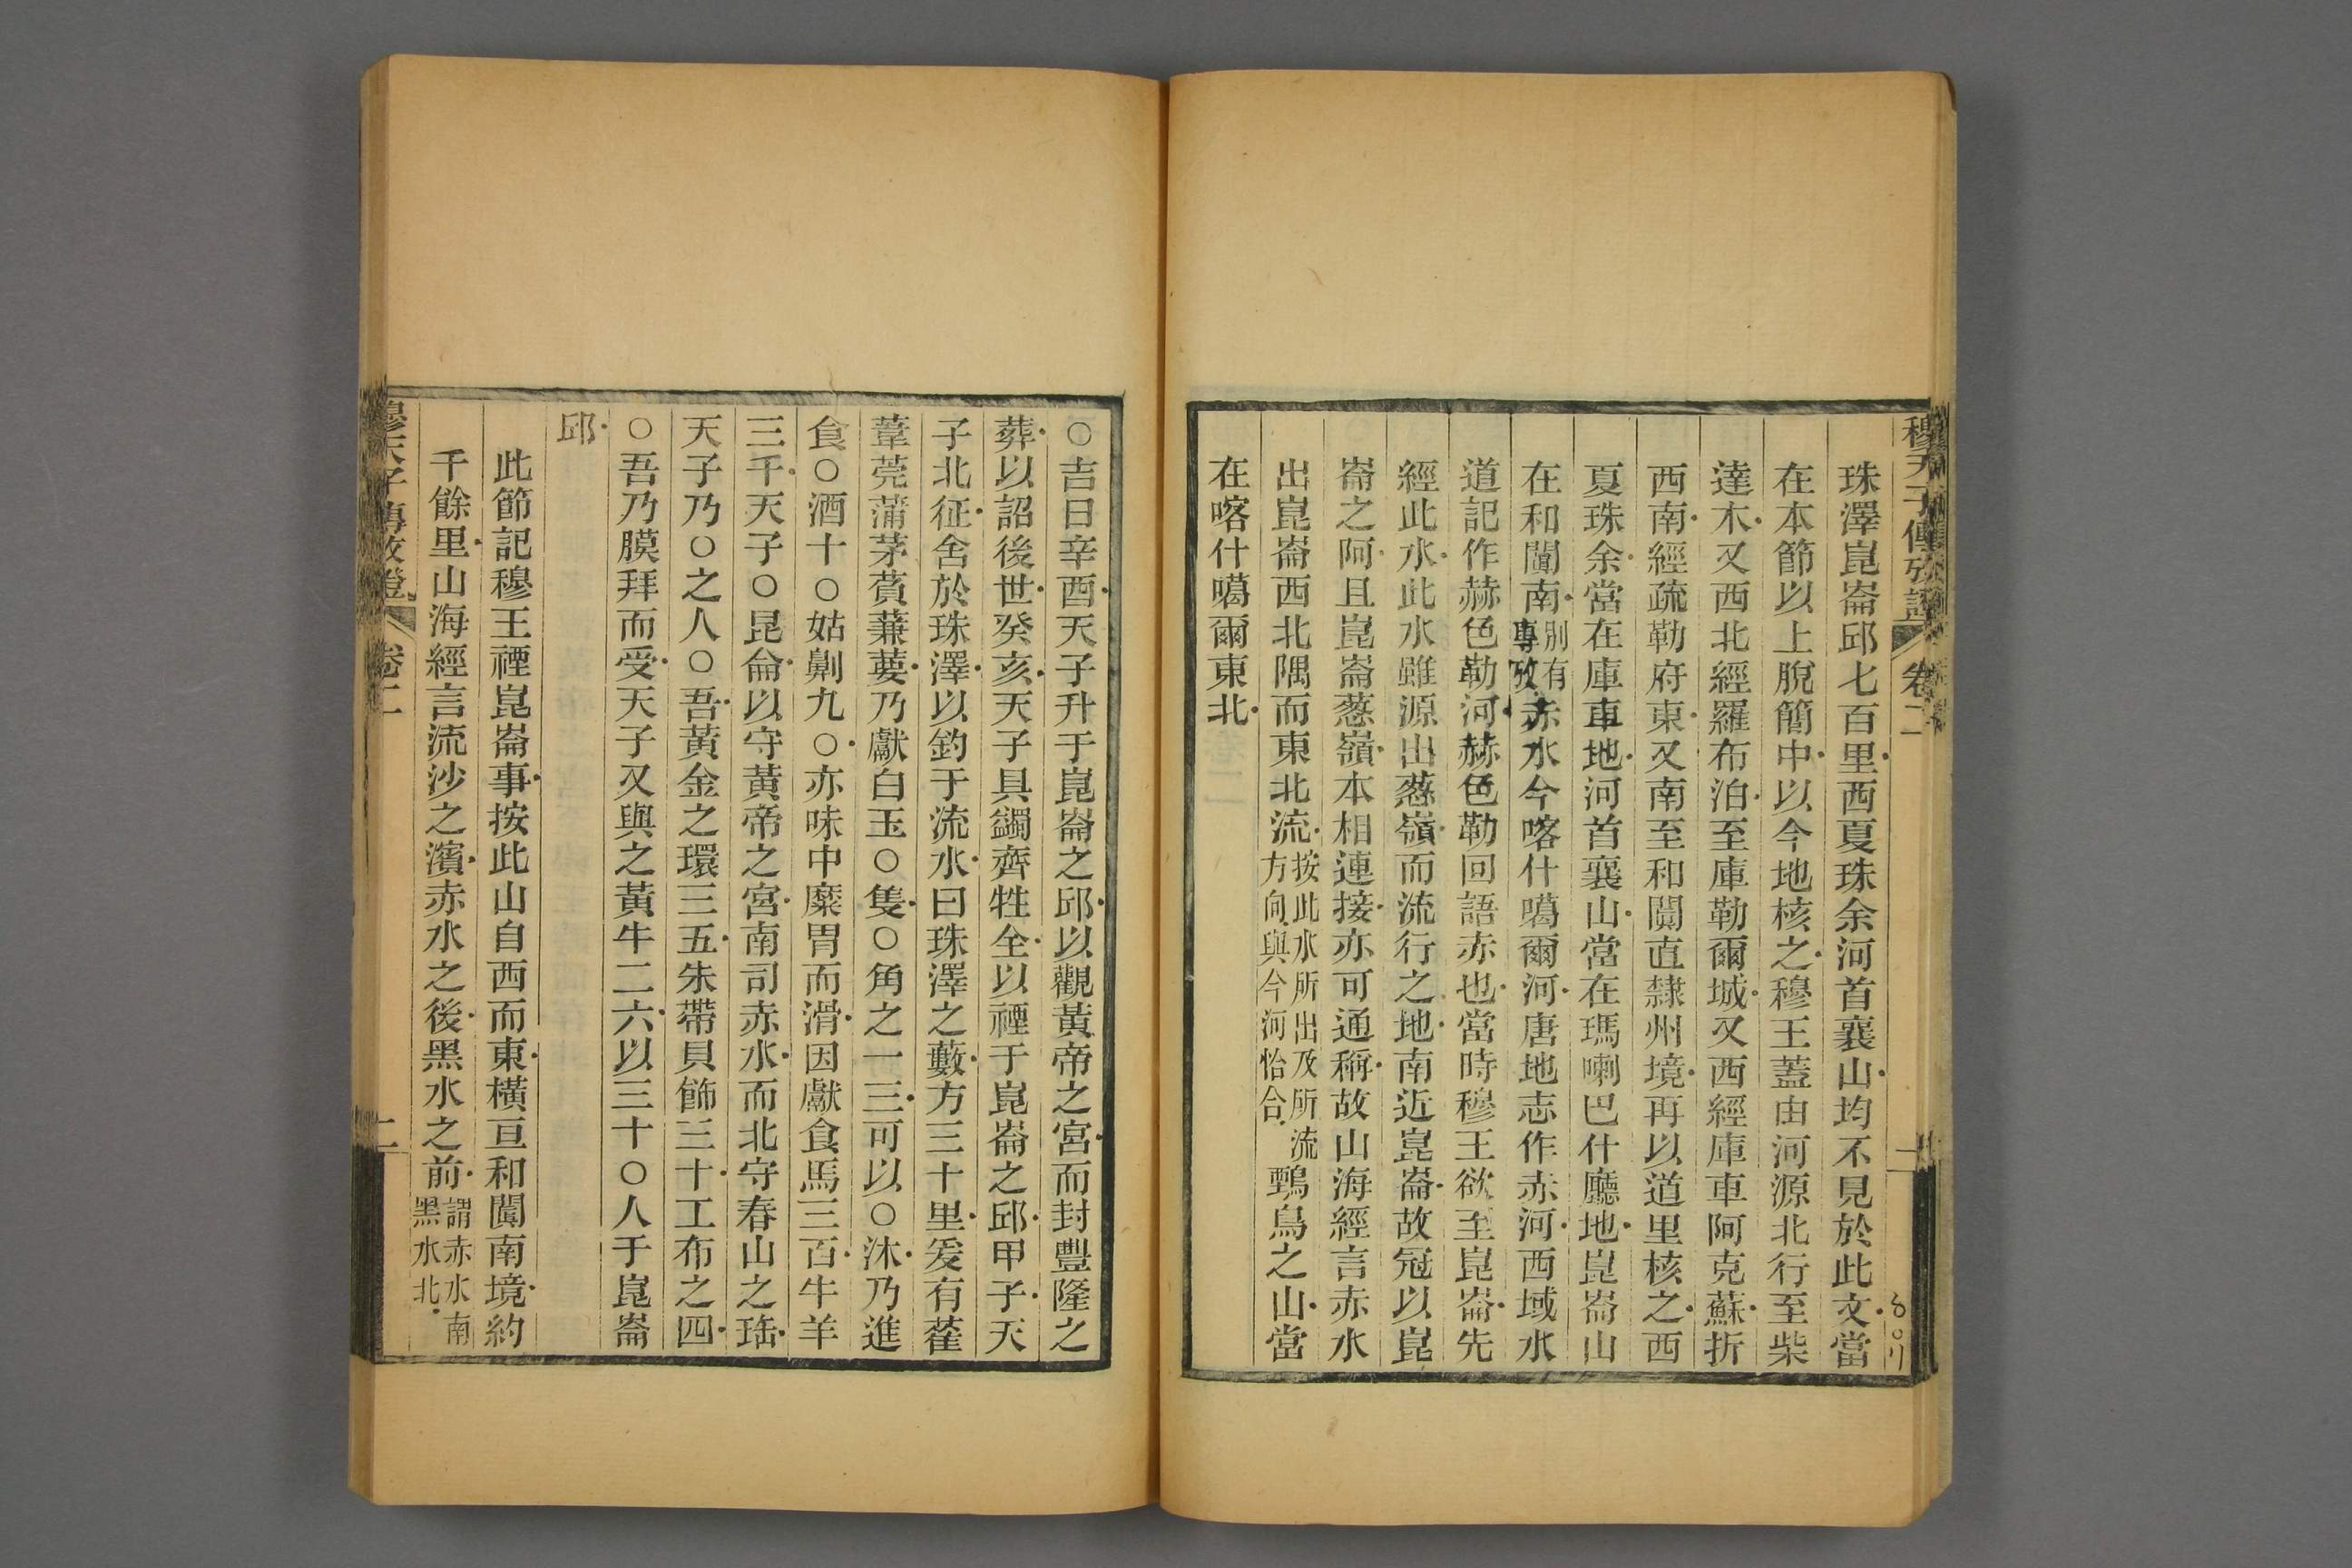 穆天子傳攷證 卷二 二
珠澤崑崙邱七百里西夏珠余河首襄山均不見於此文當
在本節以上脫簡中以今地核之穆王蓋由河源北行至柴
達木又西北經羅布泊至庫勒爾城又西經庫車阿克蘇折
西南經疏勒府東又南至和闐直隸州境再以道里核之西
夏珠余當在庫車地河首襄山當在瑪喇巴什廳地崑崙山
在和闐南別有專攷赤水今喀什噶爾河唐地志作赤河西域水
道記作赫色勒河赫色勒回語赤也當時穆王欲至崑崙先
經此水此水雖源出蔥嶺而流行之地南近崑崙故冠以崑
崙之阿且崑崙蔥嶺本相連接亦可通稱故山海經言赤水
出崑崙西北隅而東北流按此水所出及所流方向與今河恰合鷶鳥之山當
在喀什噶爾東北
○吉日辛酉天子升于崑崙之邱以觀黃帝之宮而封豐隆之
葬以詔後世癸亥天子具蠲齊牲全以禋于崑崙之邱甲子天
子北征舍於珠澤以釣于流水曰珠澤之藪方三十里爰有雚
葦莞蒲茅萯蒹葽乃獻白玉○隻○角之一三可以○沐乃進
食○酒十○姑劓九○亦味中糜胃而滑因獻食馬三百牛羊
三千天子○昆侖以守黃帝之宮南司赤水而北守春山之珤
天子乃○之人○吾黃金之環三五朱帶貝飾三十工布之四
○吾乃膜拜而受天子又與之黃牛二六以三十○人于崑崙
邱
此節記穆王禋崑崙事按此山自西而東橫亘和闐南境約
千餘里山海經言流沙之濱赤水之後黑水之前謂赤水南黑水北
穆天子傳攷證 卷二 二